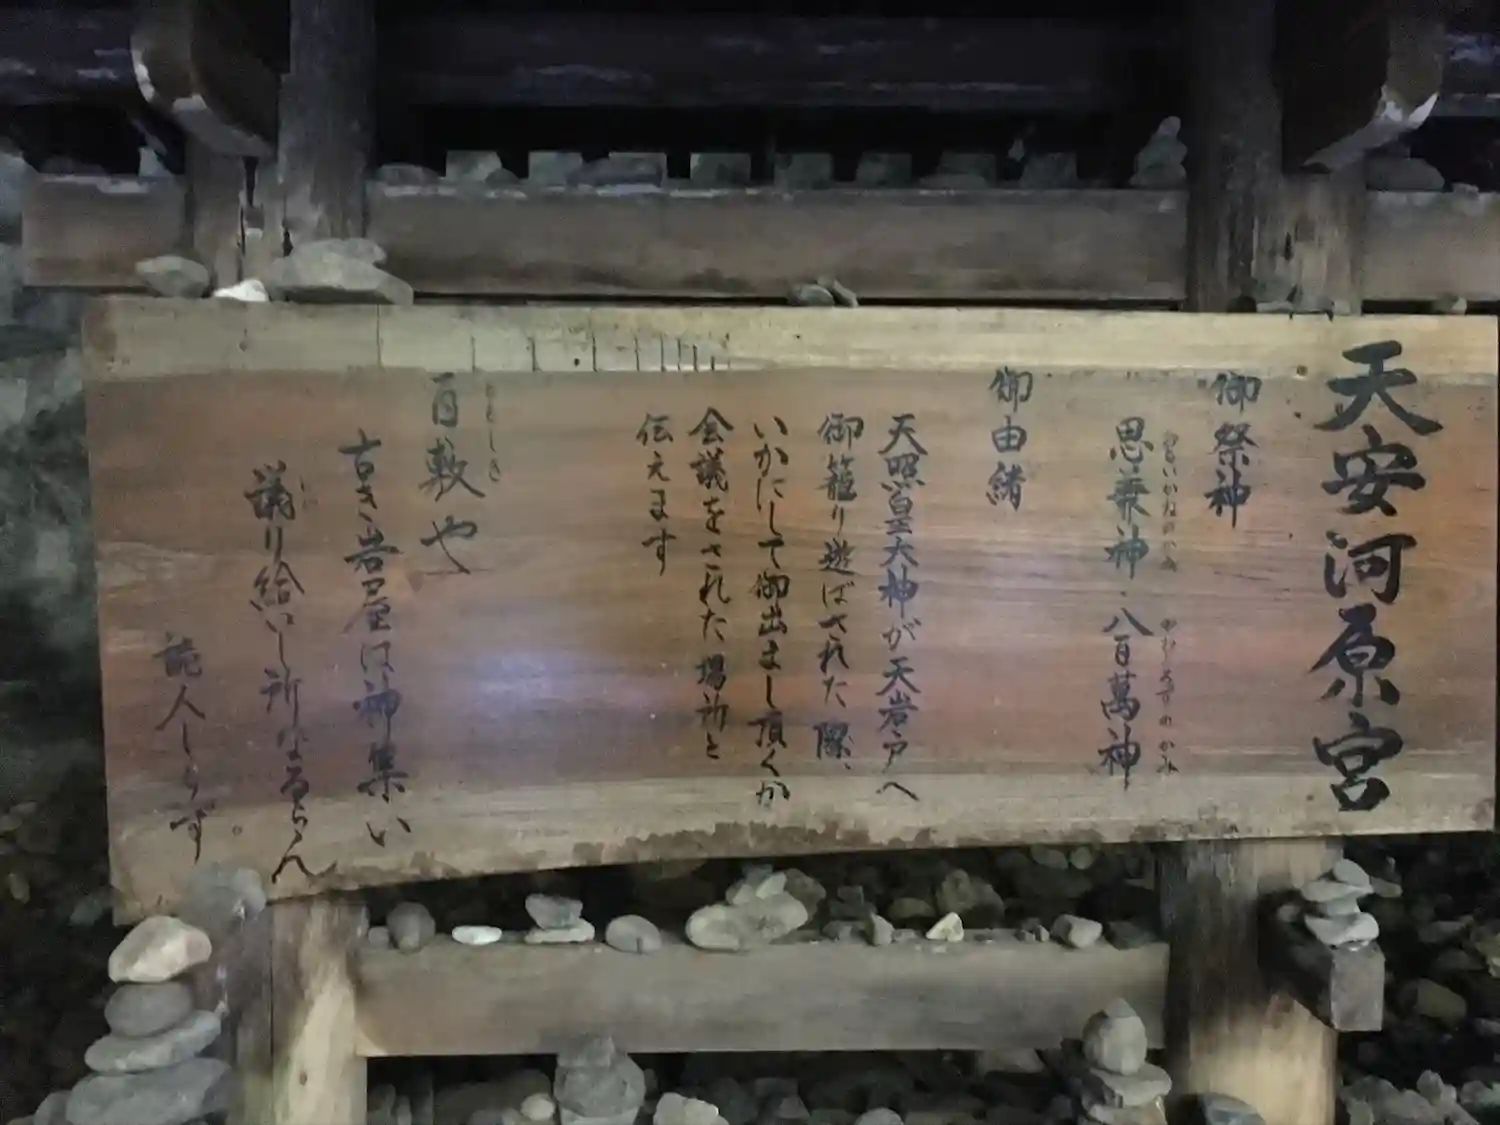 天安河原宮
御祭神
思兼神・八百萬神
おもいかねのかみ やおよろずのかみ
御由緒
天照皇大神が天岩戸へ
御籠り遊ばされた際、
いかにして御出まし頂くか
会議をされた場所と
伝えます
百敷や
ももしき
古き岩屋は神集い
議り給いし所なるらん
詠人しらず。